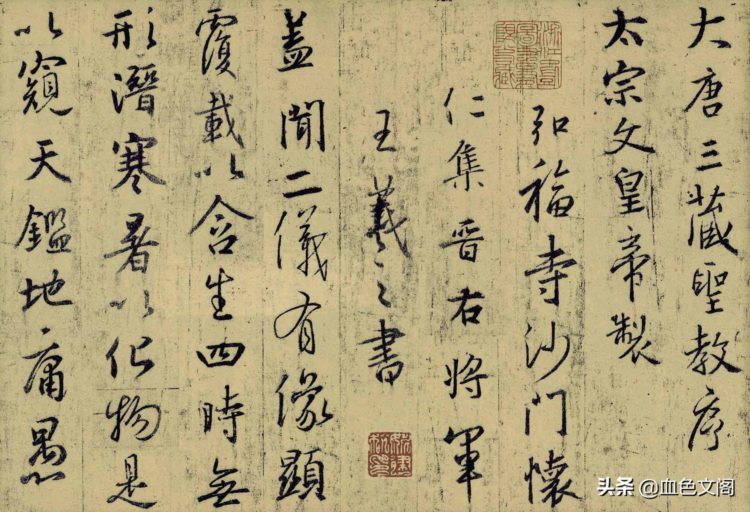 大唐三藏聖教序
太宗文皇帝製
弘福寺沙門懷
仁集晉右將軍
王羲之書
蓋聞二儀有像顯
覆載以含生四時無
形潛寒暑以化物是
以窺天鑑地庸愚
头条 @血色文阁